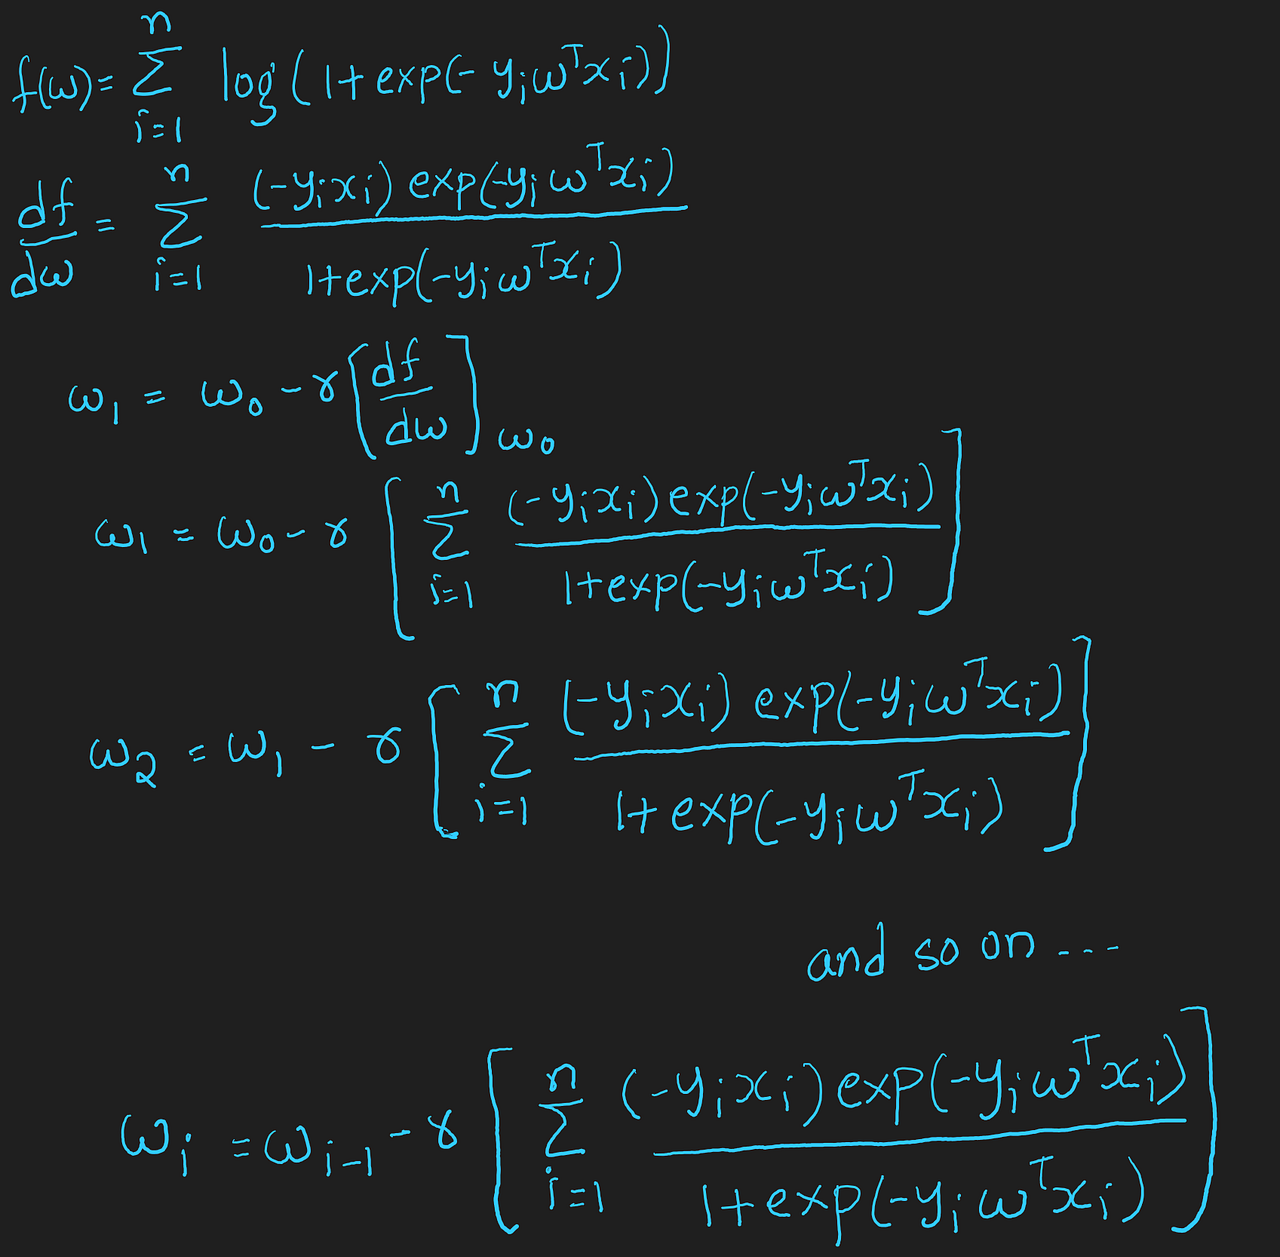 f(ω) = Σ_{i=1}^{n} log(1+exp(-y_i ω^T x_i))
df/dω = Σ_{i=1}^{n} (-y_i x_i) exp(-y_i ω^T x_i) / 1+exp(-y_i ω^T x_i)
ω_1 = ω_0 - γ [df/dω]_{ω_0}
ω_1 = ω_0 - γ [Σ_{i=1}^{n} (-y_i x_i) exp(-y_i ω^T x_i) / 1+exp(-y_i ω^T x_i)]
ω_2 = ω_1 - γ [Σ_{i=1}^{n} (-y_i x_i) exp(-y_i ω^T x_i) / 1+exp(-y_i ω^T x_i)]
and so on ---
ω_i = ω_{i-1} - γ [Σ_{i=1}^{n} (-y_i x_i) exp(-y_i ω^T x_i) / 1+exp(-y_i ω^T x_i)]